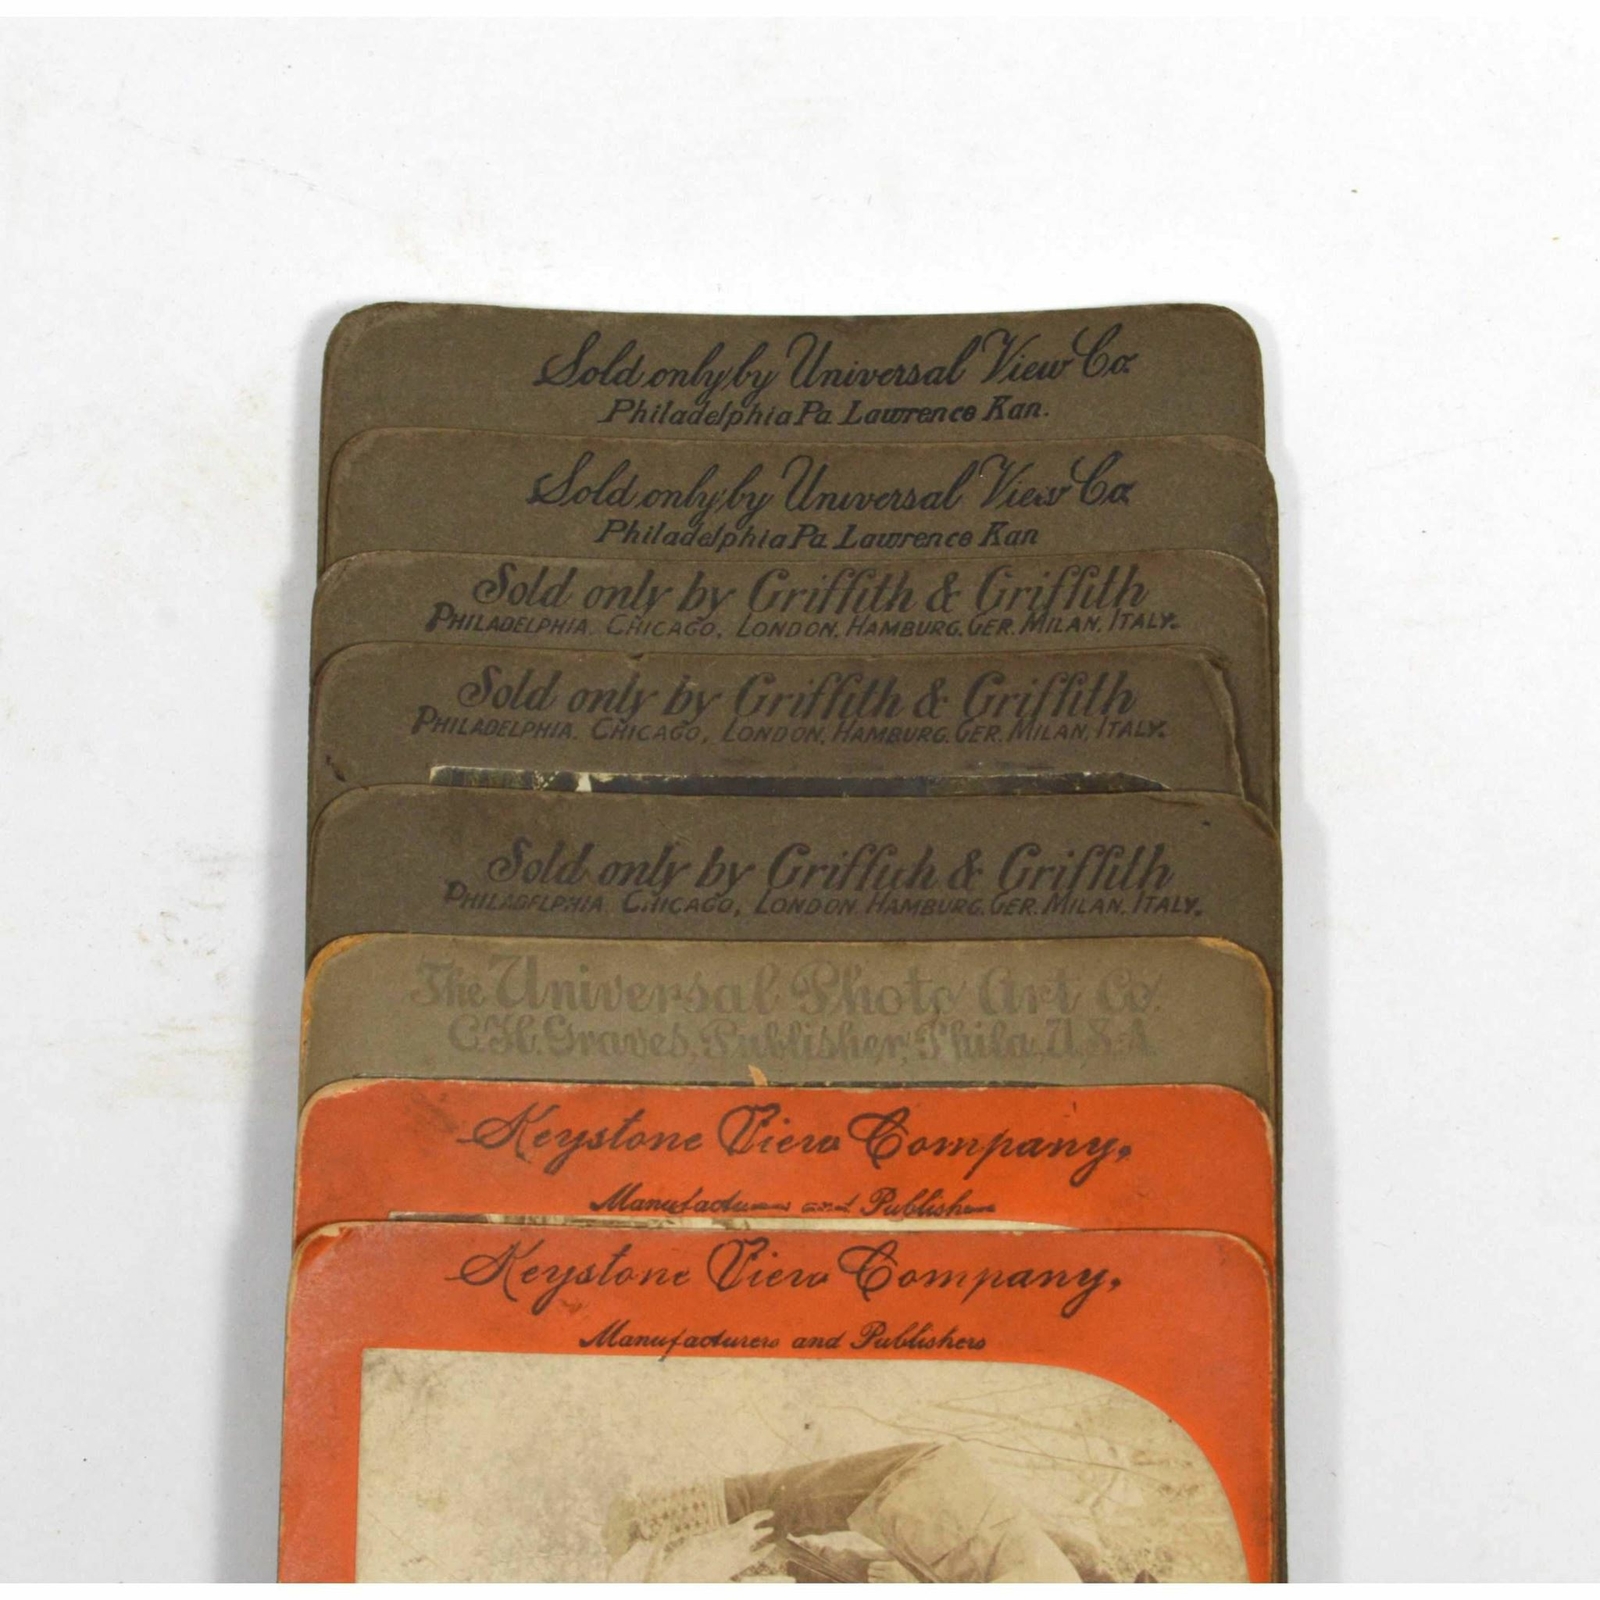 Sold only by Universal View Co.
Philadelphia Pa. Lawrence Kan.
Sold only by Universal View Co.
Philadelphia Pa. Lawrence Kan
Sold only by Griffith & Griffith
PHILADELPHIA. CHICAGO, LONDON, HAMBURG. GER. MILAN, ITALY.
Sold only by Griffith & Griffith
PHILADELPHIA. CHICAGO, LONDON, HAMBURG. GER. MILAN, ITALY.
Sold only by Griffith & Griffith
PHILADELPHIA. CHICAGO, LONDON HAMBURG. GER. MILAN. ITALY.
The Universal Photo Art Co.
C.H. Graves, Publisher, Phila. U.S.A
Keystone View Company,
Manufacturers and Publishers
Keystone View Company,
Manufacturers and Publishers